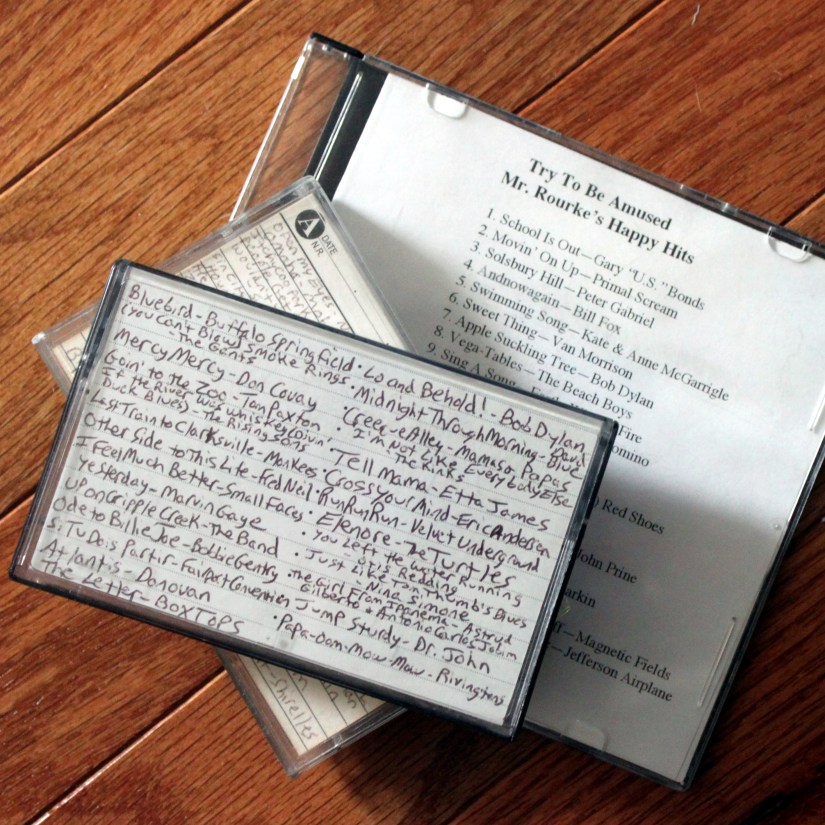 Try To Be Amused
Mr. Rourke's Happy Hits
1. School Is Out—Gary "U.S." Bonds
2. Movin' On Up—Primal Scream
3. Solsbury Hill—Peter Gabriel
4. Andnowagain—Bill Fox
5. Swimming Song—Kate & Anne McGarrigle
6. Sweet Thing—Van Morrison
7. Apple Suckling Tree—Bob Dylan
8. Vega-Tables—The Beach Boys
9. Sing A Song
Fire
omino
) Red Shoes
John Prine
arkin
—Magnetic Fields
—Jefferson Airplane
A DATE
N.R.
Bluebird - Buffalo Springfield
(You Can't Blow) Smoke Rings
- The Gants
Mercy Mercy - Don Covay
Goin' to the Zoo - Tom Paxton
If the River Was Whiskey (Divin'
Duck Blues) - The Rising Sons
Last Train to Clarksville - Monkees
Other Side to This Life - Fred Neil
I Feel Much Better - Small Faces
Yesterday - Marvin Gaye
Up on Cripple Creek - The Band
Ode to Billie Joe - Bobbie Gentry
Si Tu Dois Partir - Fairport Convention
Atlantis - Donovan
The Letter - Box Tops
· Lo and Behold! - Bob Dylan
· Midnight Through Morning - David Blue
· Creeque Alley - Mamas & Papas
· I'm Not Like Everybody Else
- The Kinks
· Tell Mama - Etta James
· Cross Your Mind - Eric Andersen
· Run Run Run - Velvet Underground
· Elenore - The Turtles
· You Left the Water Running
- Otis Redding
· Just Like Tom Thumb's Blues
- Nina Simone
· The Girl From Ipanema - Astrud
Gilberto & Antonio Carlos Jobim
· Jump Sturdy - Dr. John
· Papa-Oom-Mow-Mow - Rivingtons
Shirelles